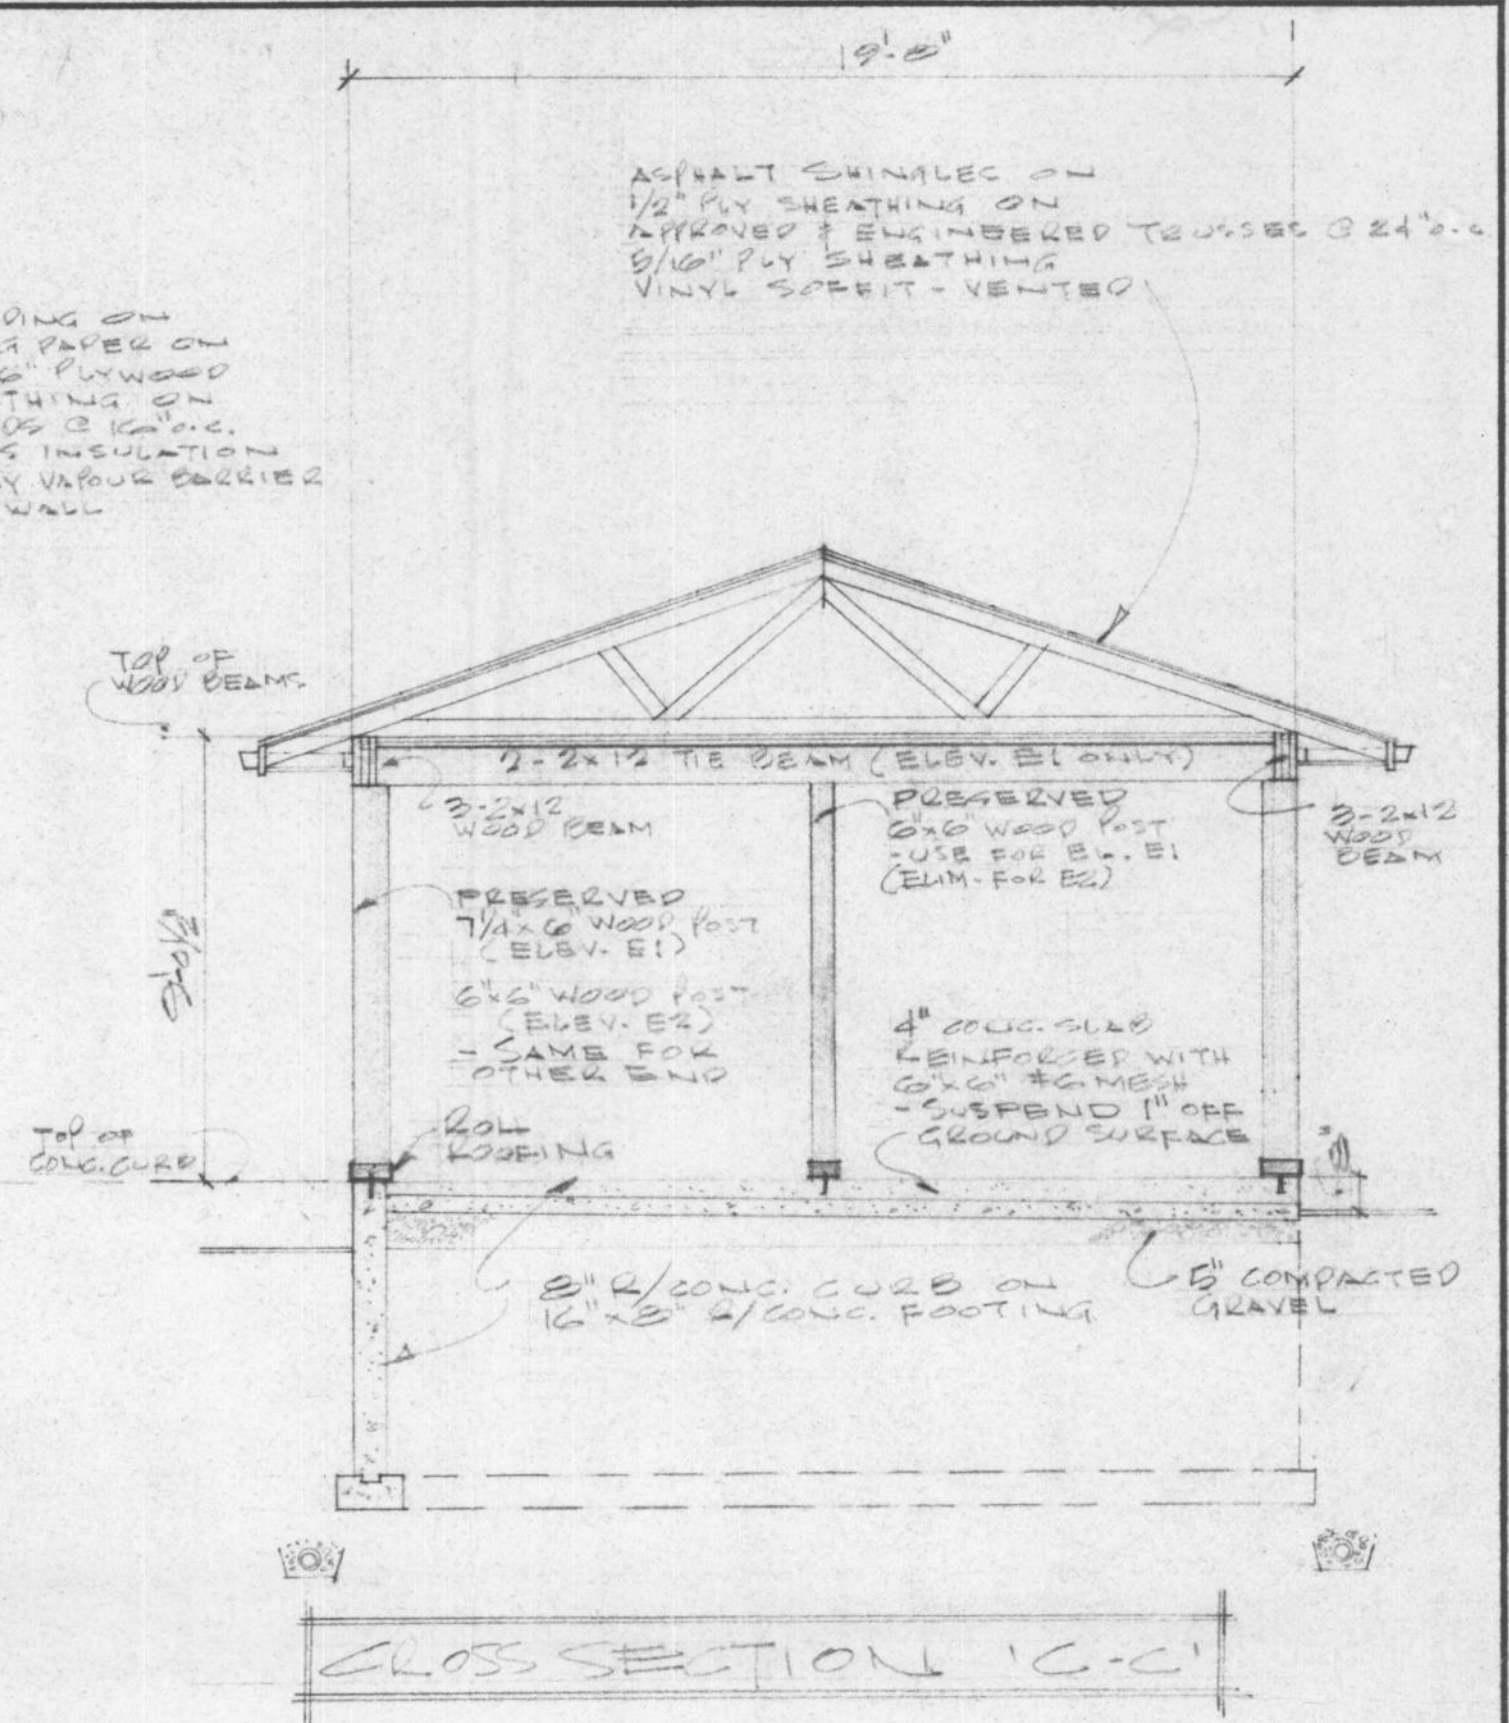 19'-8"
ASPHALT SHINGLES ON
1/2" PLY SHEATHING ON
APPROVED & ENGINEERED TRUSSES @ 24" o.c.
5/16" PLY SHEATHING
VINYL SOFFIT - VENTED
DING ON
G PAPER ON
6" PLYWOOD
THING ON
DS @ 16" o.c.
S INSULATION
Y VAPOUR BARRIER
WALL
TOP OF
WOOD BEAMS
2-2x12 TIE BEAM (ELEV. E1 ONLY)
3-2x12
WOOD BEAM
PRESERVED
6"x6" WOOD POST
- USE FOR EL. E1
(ELIM. FOR E2)
3-2x12
WOOD
BEAM
PRESERVED
7 1/4" x 6" WOOD POST
(ELEV. E1)
6"x6" WOOD POST
(ELEV. E2)
- SAME FOR
OTHER END
4" CONC. SLAB
REINFORCED WITH
6"x6" #6 MESH
- SUSPEND 1" OFF
GROUND SURFACE
ROLL
ROOFING
TOP OF
CONC. CURB
8" R/CONC. CURB ON
16"x8" R/CONC. FOOTING
5" COMPACTED
GRAVEL
CROSS SECTION 'C-C'